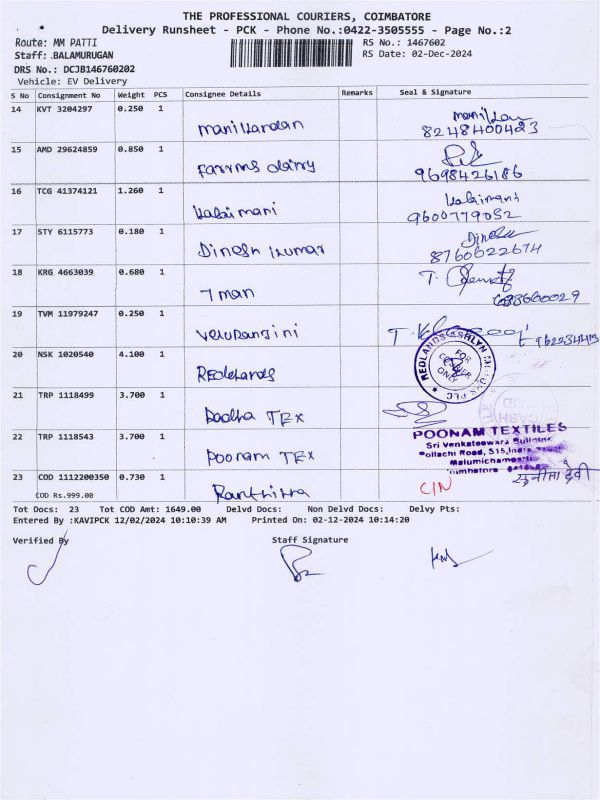 THE PROFESSIONAL COURIERS, COIMBATORE
Delivery Runsheet - PCK - Phone No.:0422-3505555 - Page No.:2
Route: MM PATTI
RS No.: 1467602
Staff: BALAMURUGAN
RS Date: 02-Dec-2024
DRS No.: DCJB146760202
Vehicle: EV Delivery
S No Consignment No Weight PCS Consignee Details Remarks Seal & Signature
14 KVT 3204297 0.250 1 Manikandan
8248400423
15 AMD 29624859 0.850 1 Farms dairy
9698426186
16 TCG 41374121 1.260 1 Kalaimani Kalaimani
9600779052
17 STY 6115773 0.180 1 Dinesh Kumar Dinesh
8760622674
18 KRG 4663039 0.680 1 7 man T.
19 TVM 11979247 0.250 1 T.
20 NSK 1020540 4.100 1 Redlands
REDLANDS ASHLYN
FOR COURIER ONLY
21 TRP 1118499 3.700 1 Radha TEX
22 TRP 1118543 3.700 1 Poonam TEX
POONAM TEXTILES
Sri Venkateswara Building
Pollachi Road,
23 COD 1112200350 0.730 1
COD Rs.999.00
सुनीता देवी
Tot Docs: 23 Tot COD Amt: 1649.00 Delvd Docs: Non Delvd Docs: Delvy Pts:
Entered By :KAVIPCK 12/02/2024 10:10:39 AM Printed On: 02-12-2024 10:14:20
Verified By Staff Signature